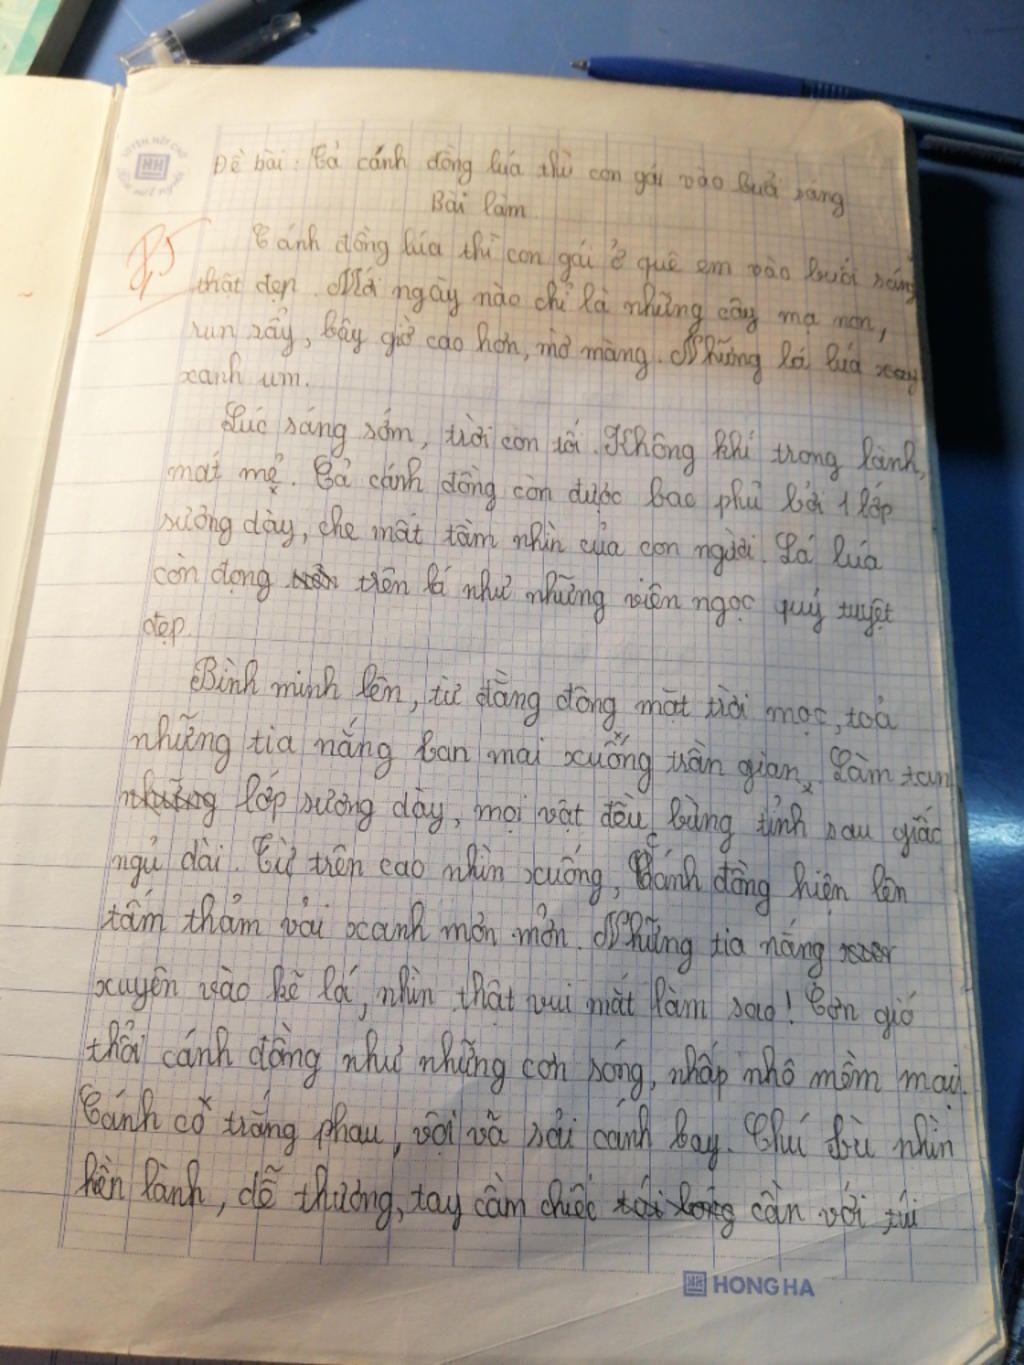 Đề bài: Tả cánh đồng lúa thì con gái vào buổi sáng
Bài làm
8,5
Cánh đồng lúa thì con gái ở quê em vào buổi sáng
thật đẹp. Mới ngày nào chỉ là những cây mạ non,
run rẩy, bây giờ cao hơn, mỡ màng. Những lá lúa xay
xanh um.
Lúc sáng sớm, trời còn tối. Không khí trong lành,
mát mẻ. Cả cánh đồng còn được bao phủ bởi 1 lớp
sương dày, che mất tầm nhìn của con người. Lá lúa
còn đọng trên lá như những viên ngọc quý tuyệt
đẹp.
Bình minh lên, từ đằng đông mặt trời mọc, toả
những tia nắng ban mai xuống trần gian. Làm tan
những lớp sương dày, mọi vật đều bừng tỉnh sau giấc
ngủ dài. Từ trên cao nhìn xuống, cánh đồng hiện lên
tấm thảm vải xanh mơn mởn. Những tia nắng
xuyên vào kẽ lá, nhìn thật vui mắt làm sao! Cơn gió
thổi cánh đồng như những con sóng, nhấp nhô mềm mại.
Cánh cò trắng phau, vội vã sải cánh bay. Chú bù nhìn
hiền lành, dễ thương, tay cầm chiếc cần với túi
HONG HA